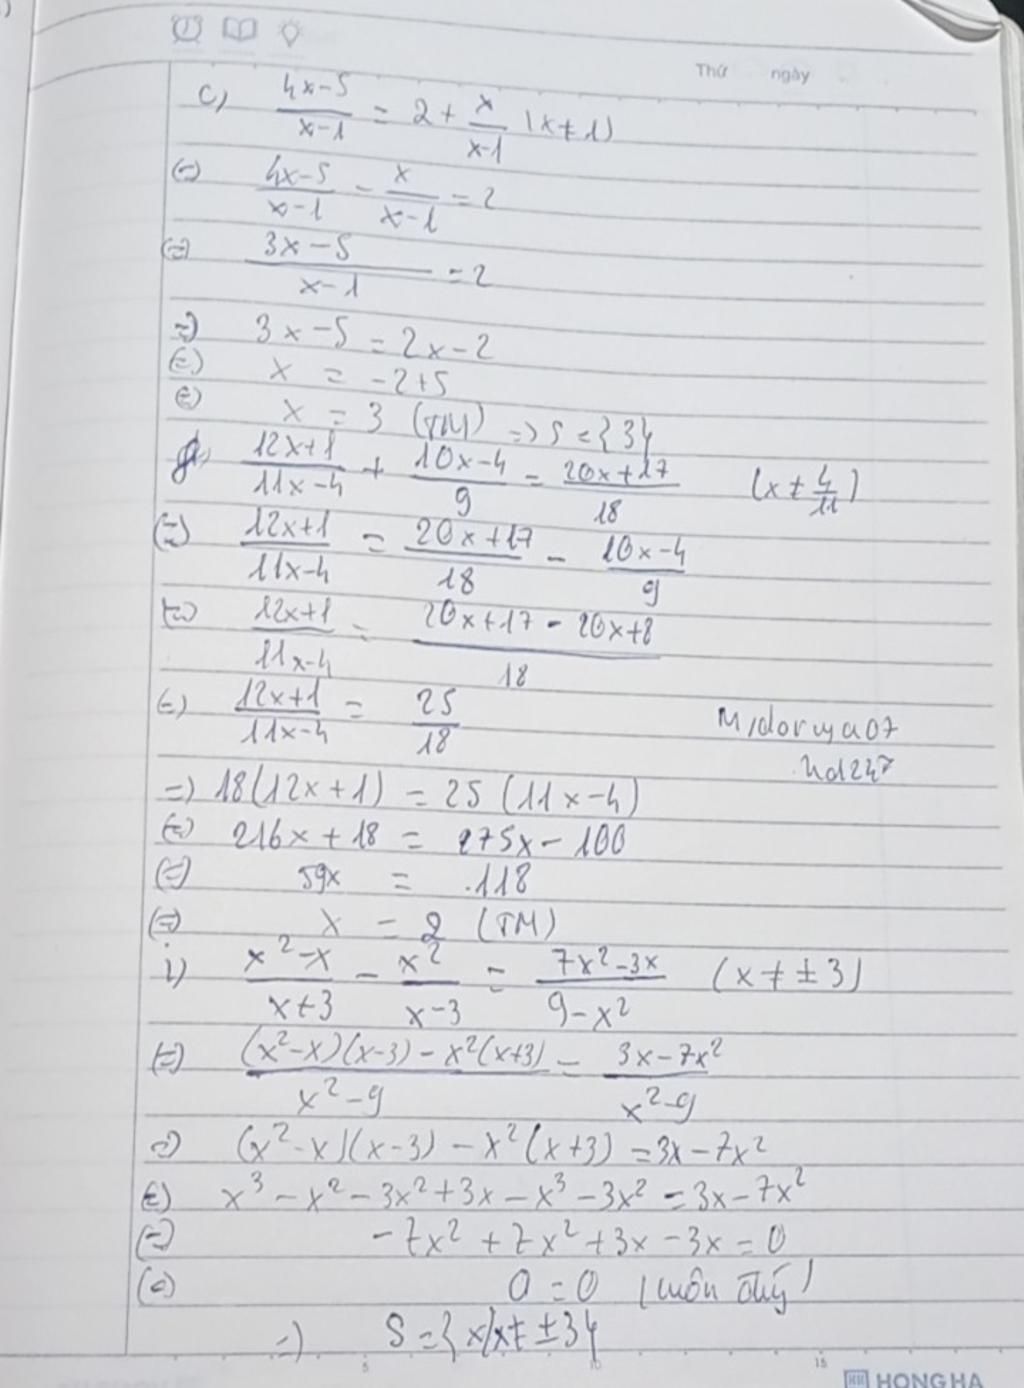 Thứ ngày
c) (4x-5)/(x-1) = 2 + x/(x-1) (x≠1)
(=) (4x-5)/(x-1) - x/(x-1) = 2
(=) (3x-5)/(x-1) = 2
=) 3x-5 = 2x-2
(=) x = -2+5
(=) x = 3 (TM) => S={3}
(12x+1)/(11x-4) + (10x-4)/9 = (20x+17)/18 (x≠4/11)
(=) (12x+1)/(11x-4) = (20x+17)/18 - (10x-4)/9
(=) (12x+1)/(11x-4) = (20x+17-20x+8)/18
(=) (12x+1)/(11x-4) = 25/18
=) 18(12x+1) = 25(11x-4)
(=) 216x+18 = 275x-100
(=) 59x = 118
(=) x = 2 (TM)
i) (x²-x)/(x+3) - x²/(x-3) = (7x²-3x)/(9-x²) (x≠±3)
(=) ((x²-x)(x-3)-x²(x+3))/(x²-9) = (3x-7x²)/(x²-9)
=) (x²-x)(x-3) - x²(x+3) = 3x-7x²
(=) x³-x²-3x²+3x-x³-3x² = 3x-7x²
(=) -7x²+7x²+3x-3x=0
(=) 0=0 (luôn đúng)
=) S={x/x≠±3}
5 10 15
HH HONG HA